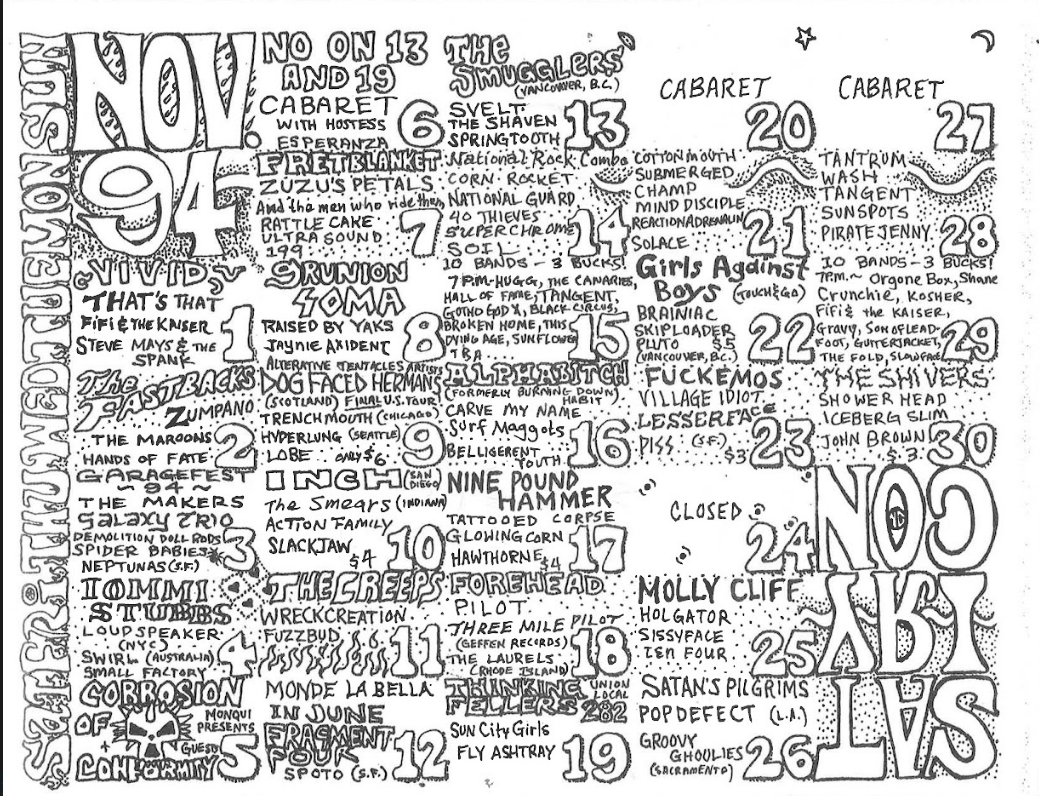 SUN
MON
TUE
WED
THU
FRI
SAT
NOV.
94
VIVID
THAT'S THAT
FIFI & THE KAISER
STEVE MAYS & THE
SPANK
1
The
FASTBACKS
ZUMPANO
THE MAROONS
HANDS OF FATE
2
GARAGEFEST
~ 94 ~
THE MAKERS
GALAXY TRIO
DEMOLITION DOLL RODS
SPIDER BABIES
NEPTUNAS (S.F.)
3
IOMMI
STUBBS
LOUDSPEAKER
(NYC)
SWIRL (AUSTRALIA)
SMALL FACTORY
4
CORROSION
OF
CONFORMITY
MONQUI
PRESENTS
+
GUEST
5
NO ON 13
AND 19
CABARET
WITH HOSTESS
ESPERANZA
6
FRETBLANKET
ZUZU'S PETALS
And the men who ride them
RATTLE CAKE
ULTRA SOUND
199
7
GRUNION
SOMA
RAISED BY YAKS
JAYNIE AXIDENT
8
ALTERATIVE TENTACLES ARTISTS
DOG FACED HERMANS
(SCOTLAND) FINAL U.S. TOUR
TRENCHMOUTH (CHICAGO)
HYDERLUNG (SEATTLE)
LOBE ... ONLY $6
9
INCH (SAN DIEGO)
The Smears (INDIANA)
ACTION FAMILY
SLACKJAW
$4
10
THE CREEPS
WRECKCREATION
FUZZBUD
11
MONDE LA BELLA
IN JUNE
FRAGMENT
FOUR
SPOTO (S.F.)
12
THE
SMUGGLERS
(VANCOUVER, B.C.)
SVELT
THE SHAVEN
SPRINGTOOTH
13
National Rock Combo
CORN ROCKET
NATIONAL GUARD
40 THIEVES
SUPERCHROME
SOIL
14
10 BANDS - 3 BUCKS!
7 P.M. - HUGG, THE CANARIES,
HALL OF FAME, TANGENT,
GOTHO GOD X, BLACK CIRCUS,
BROKEN HOME, THIS
DYING AGE, SUNFLOWER
T.B.A.
15
ALPHABITCH
(FORMERLY BURNING DOWN)
HABIT
CARVE MY NAME
Surf Maggots
BELLIGERENT
YOUTH
16
NINE POUND
HAMMER
TATTOOED CORPSE
GLOWING CORN
HAWTHORNE $4
17
FOREHEAD
PILOT
THREE MILE PILOT
(GEFFEN RECORDS)
THE LAURELS
(RHODE ISLAND)
18
THINKING
FELLERS
UNION
LOCAL
282
Sun City Girls
FLY ASHTRAY
19
CABARET
20
COTTONMOUTH
SUBMERGED
CHAMP
MIND DISCIPLE
REACTION ADRENALIN
SOLACE
21
Girls Against
Boys (TOUCH & GO)
BRAINIAC
SKIPLOADER
PLUTO $5
(VANCOUVER, B.C.)
22
FUCKEMOS
VILLAGE IDIOT
LESSERFACE
PISS (S.F.)
$3
23
CLOSED
24
MOLLY CLIFF
HOLGATOR
SISSYFACE
TEN FOUR
25
SATAN'S PILGRIMS
POPDEFECT (L.A.)
GROOVY
GHOULIES
(SACRAMENTO)
26
CABARET
27
TANTRUM
WASH
TANGENT
SUNSPOTS
PIRATE JENNY
28
10 BANDS - 3 BUCKS!
7P.M. ~ Orgone Box, Shane
Crunchie, KOSHER,
FIFI & the KAISER,
GRAVY, SON OF LEAD-
FOOT, GUTTERJACKET,
THE FOLD, SLOWFACE
29
THE SHIVERS
SHOWER HEAD
ICEBERG SLIM
JOHN BROWN
$3
30
SAT
YRI
CON